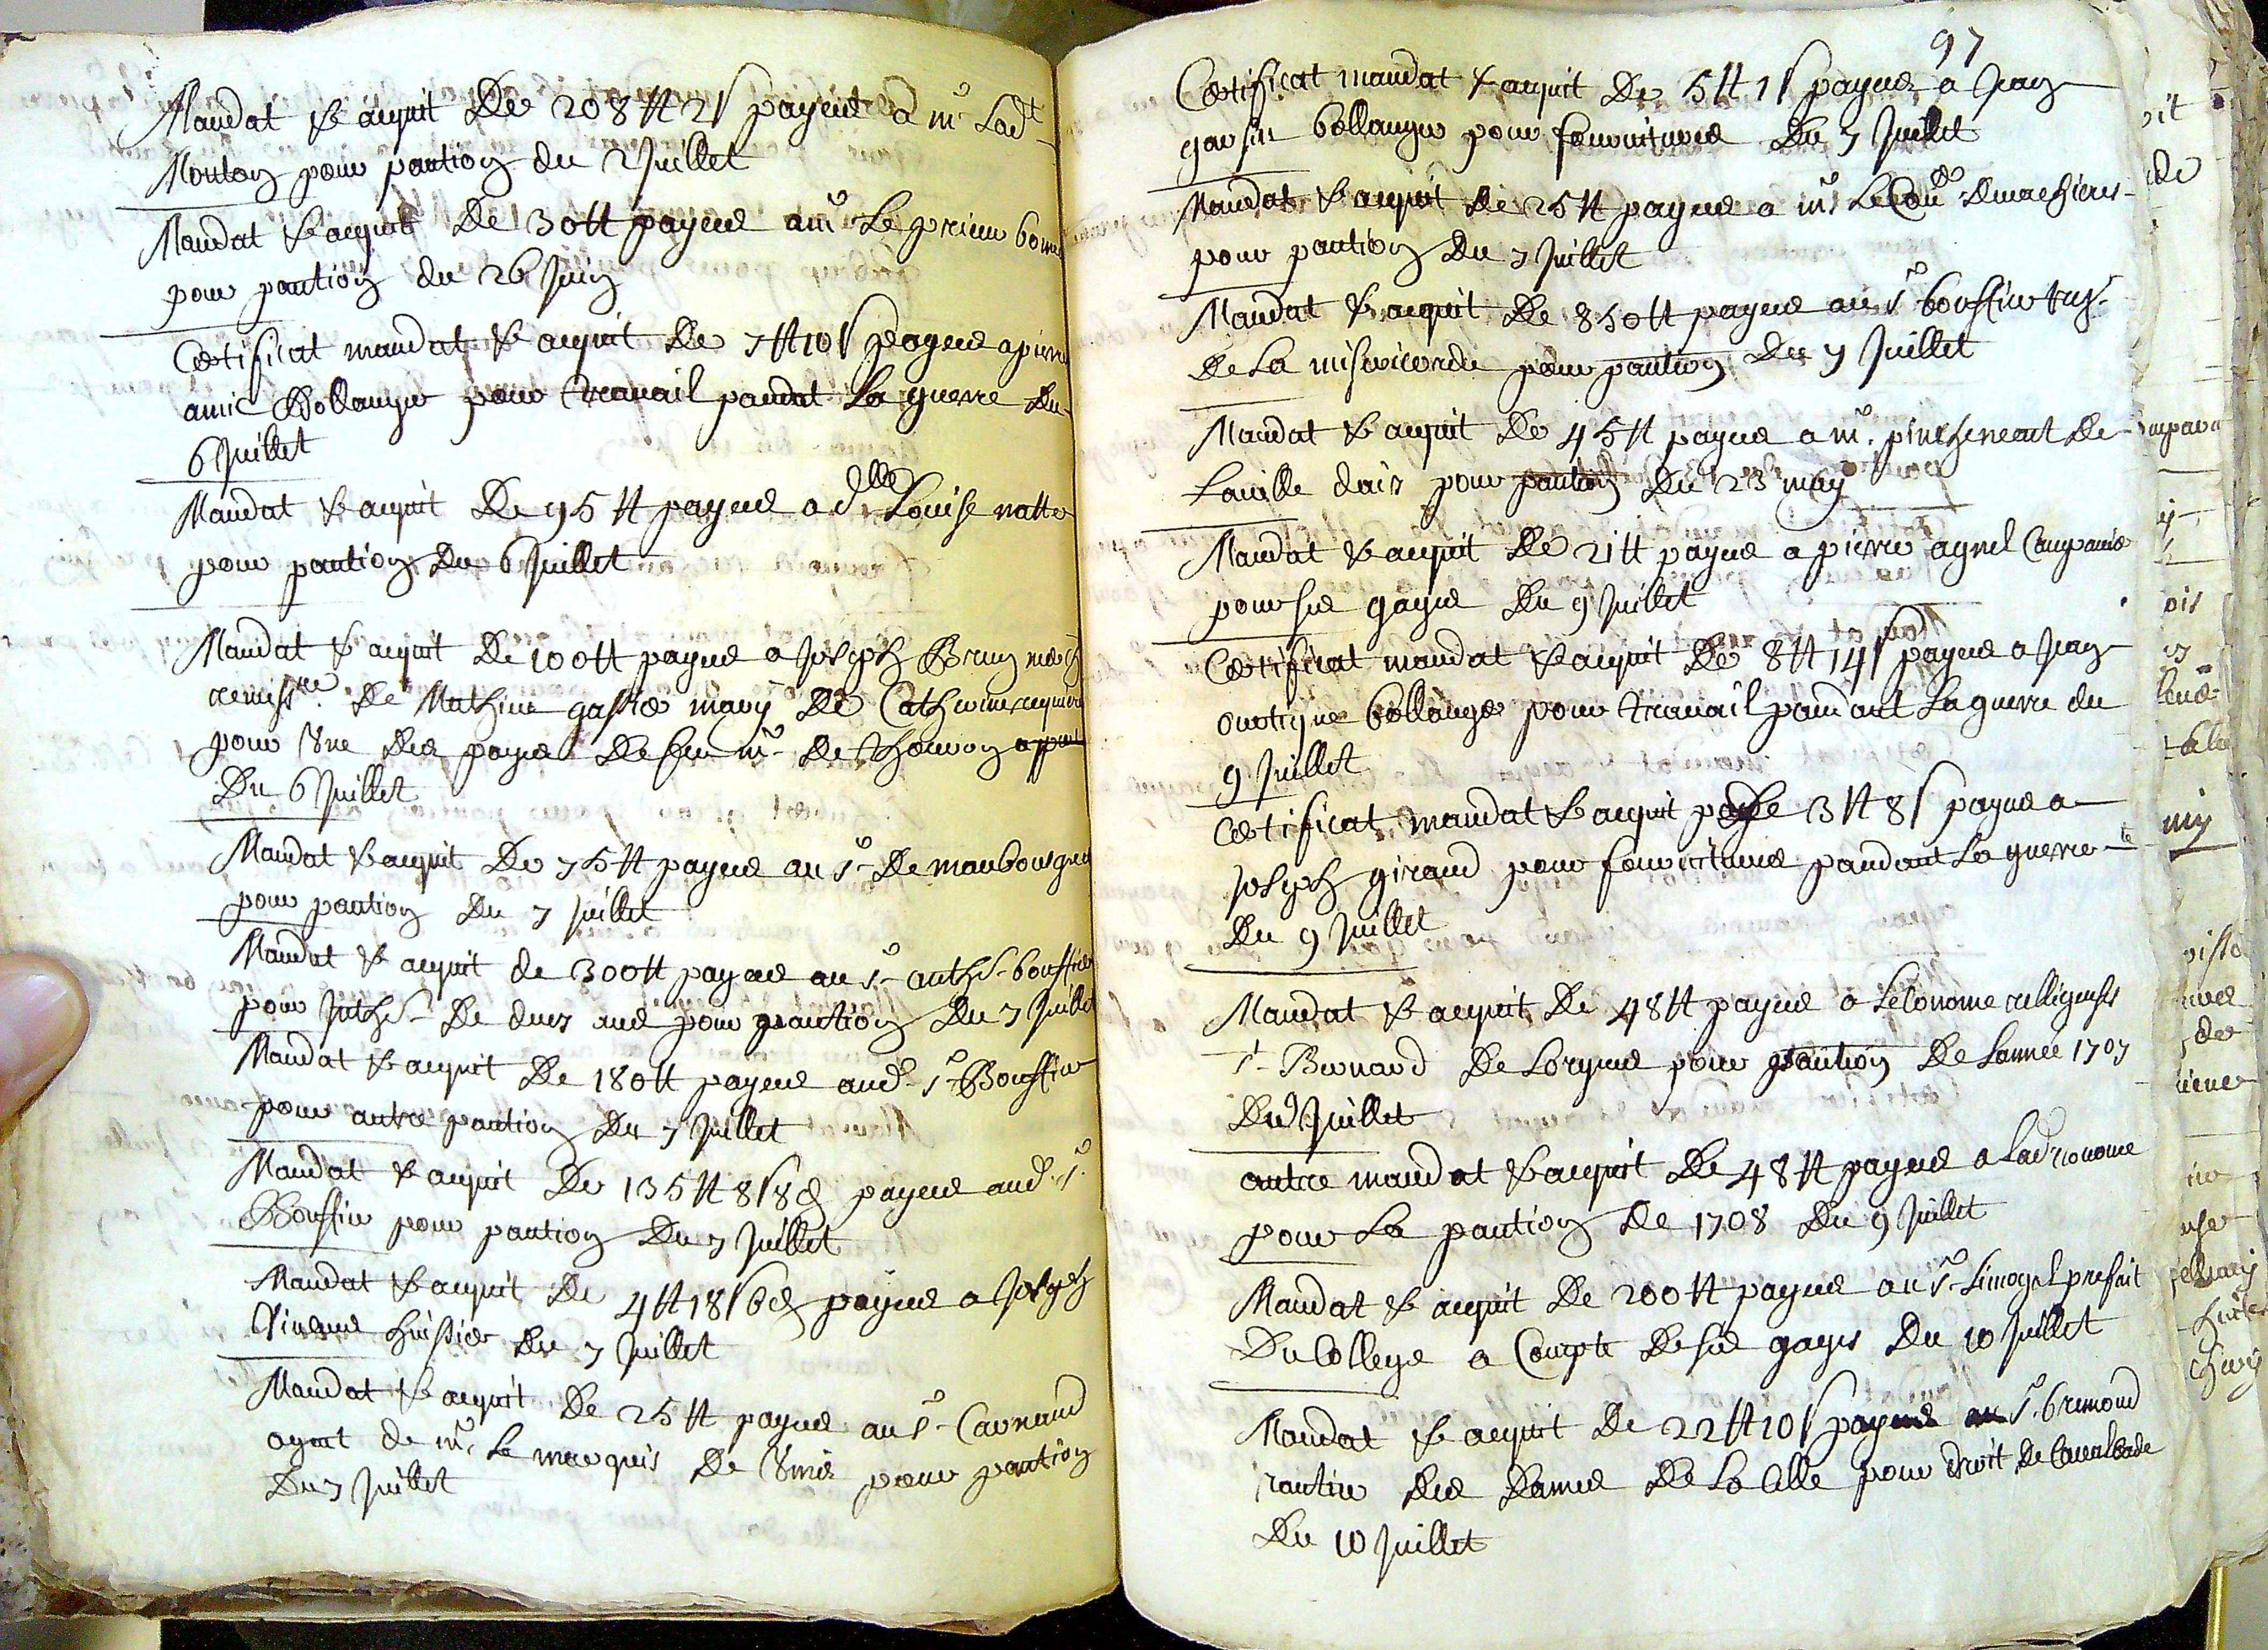 Mandat & aquit De 208 ₶ 2 s payees a mr Ladt
Mouton pour pantion du 2 Juillet
Mandat & aquit De 30 ₶ payees a mr Le prieur
pour pantion du 26 Juin
Certificat mandat & aquit De 7 ₶ 10 s payees a pierre
amic Bollanger pour travail pandat La guerre Du
6 Juillet
Mandat & aquit De 95 ₶ payees a dlle Louise
pour pantion Du 6 Juillet
Mandat & aquit De 100 ₶ payees a Joseph Brun
De Mathieu gassier mary De Catherine
pour Une des payes De feu mr De
Du 6 Juillet
Mandat & aquit De 75 ₶ payees au sr De maubousquet
pour pantion Du 7 Juillet
Mandat & aquit de 300 ₶ payees au sr anthe bouffier
pour De deux ans pour pantion Du 7 Juillet
Mandat & aquit De 180 ₶ payees aud sr Bouffier
pour autre pantion Du 7 Juillet
Mandat & aquit De 135 ₶ 8 s 8 d payees aud sr
Bouffier pour pantion Du 7 Juillet
Mandat & aquit De 4 ₶ 18 s 6 d payees a Joseph
huissier Du 7 Juillet
Mandat & aquit De 25 ₶ payees au sr Cavnaud
agent de mr Le marquis De pour pantion
Du 7 Juillet
97
Certificat mandat & aquit De 5 ₶ 1 s payees a Jean
bollanger pour fournitures Du 7 Juillet
Mandat & aquit De 25 ₶ payees a mr Le
pour pantion Du 7 Juillet
Mandat & aquit De 850 ₶ payees au sr bouffier
De La misericorde pour pantion Du 7 Juillet
Mandat & aquit De 45 ₶ payees a mr pincheneat De
Laville daix pour pantion Du 23 may
Mandat & aquit De 21 ₶ payees a pierre agnel Campanier
pour ses gages Du 9 Juillet
Certificat mandat & aquit De 8 ₶ 14 s payees a Jean
bollanger pour travail pandant La guerre du
9 Juillet
Certificat mandat & aquit De 3 ₶ 8 s payees a
Joseph giraud pour fournitures pandant La guerre
Du 9 Juillet
Mandat & aquit De 48 ₶ payees a Leconome relligeuses
st Bernard De Lorgues pour pantion De Lannée 1707
Du 9 Juillet
autre mandat & aquit De 48 ₶ payees a Lad econome
pour La pantion De 1708 Du 9 Juillet
Mandat & aquit De 200 ₶ payees au sr Limogel prefait
Du College a Compte De ses gages Du 10 Juillet
Mandat & aquit De 22 ₶ 10 s payees au sr bremond
rantier des Dames De La Celle pour droit De Cavalcade
Du 10 Juillet